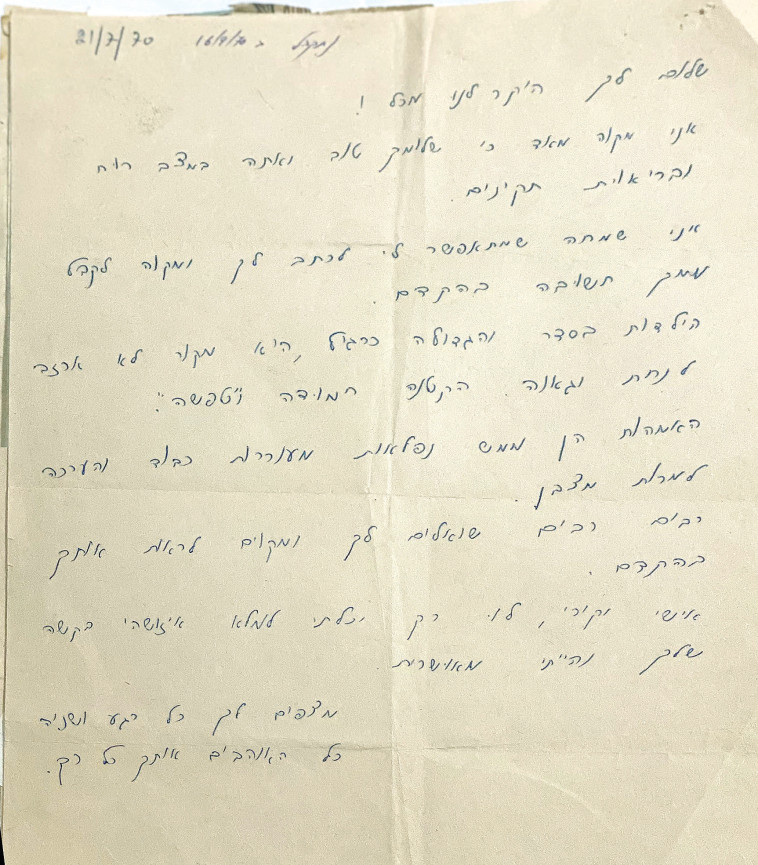 נתקבל ב 16/9/70 21/7/70
שלום לך היקר לנו מכל !
אני מקוה מאד כי שלומך טוב ואתה במצב רוח
ובריאות תקינים.
אני שמחה שמתאפשר לי לכתב לך ומקוה לקבל
ממך תשובה בהקדם.
הילדות בסדר והגדולה כרגיל, היא מקור לא אכזב
לנחת וגאוה. הקטנה חמודה ו"טפשה".
האמהות הן ממש נפלאות מעוררות כבוד והערכה
למרות מצבן.
רבים רבים שואלים לך ומקוים לראות אותך
בהקדם.
אישי יקירי, לו רק יכלתי למלא איזושהי בקשה
שלך והייתי מאושרת.
מצפים לך כל רגע ושניה
כל האוהבים אותך כל כך.